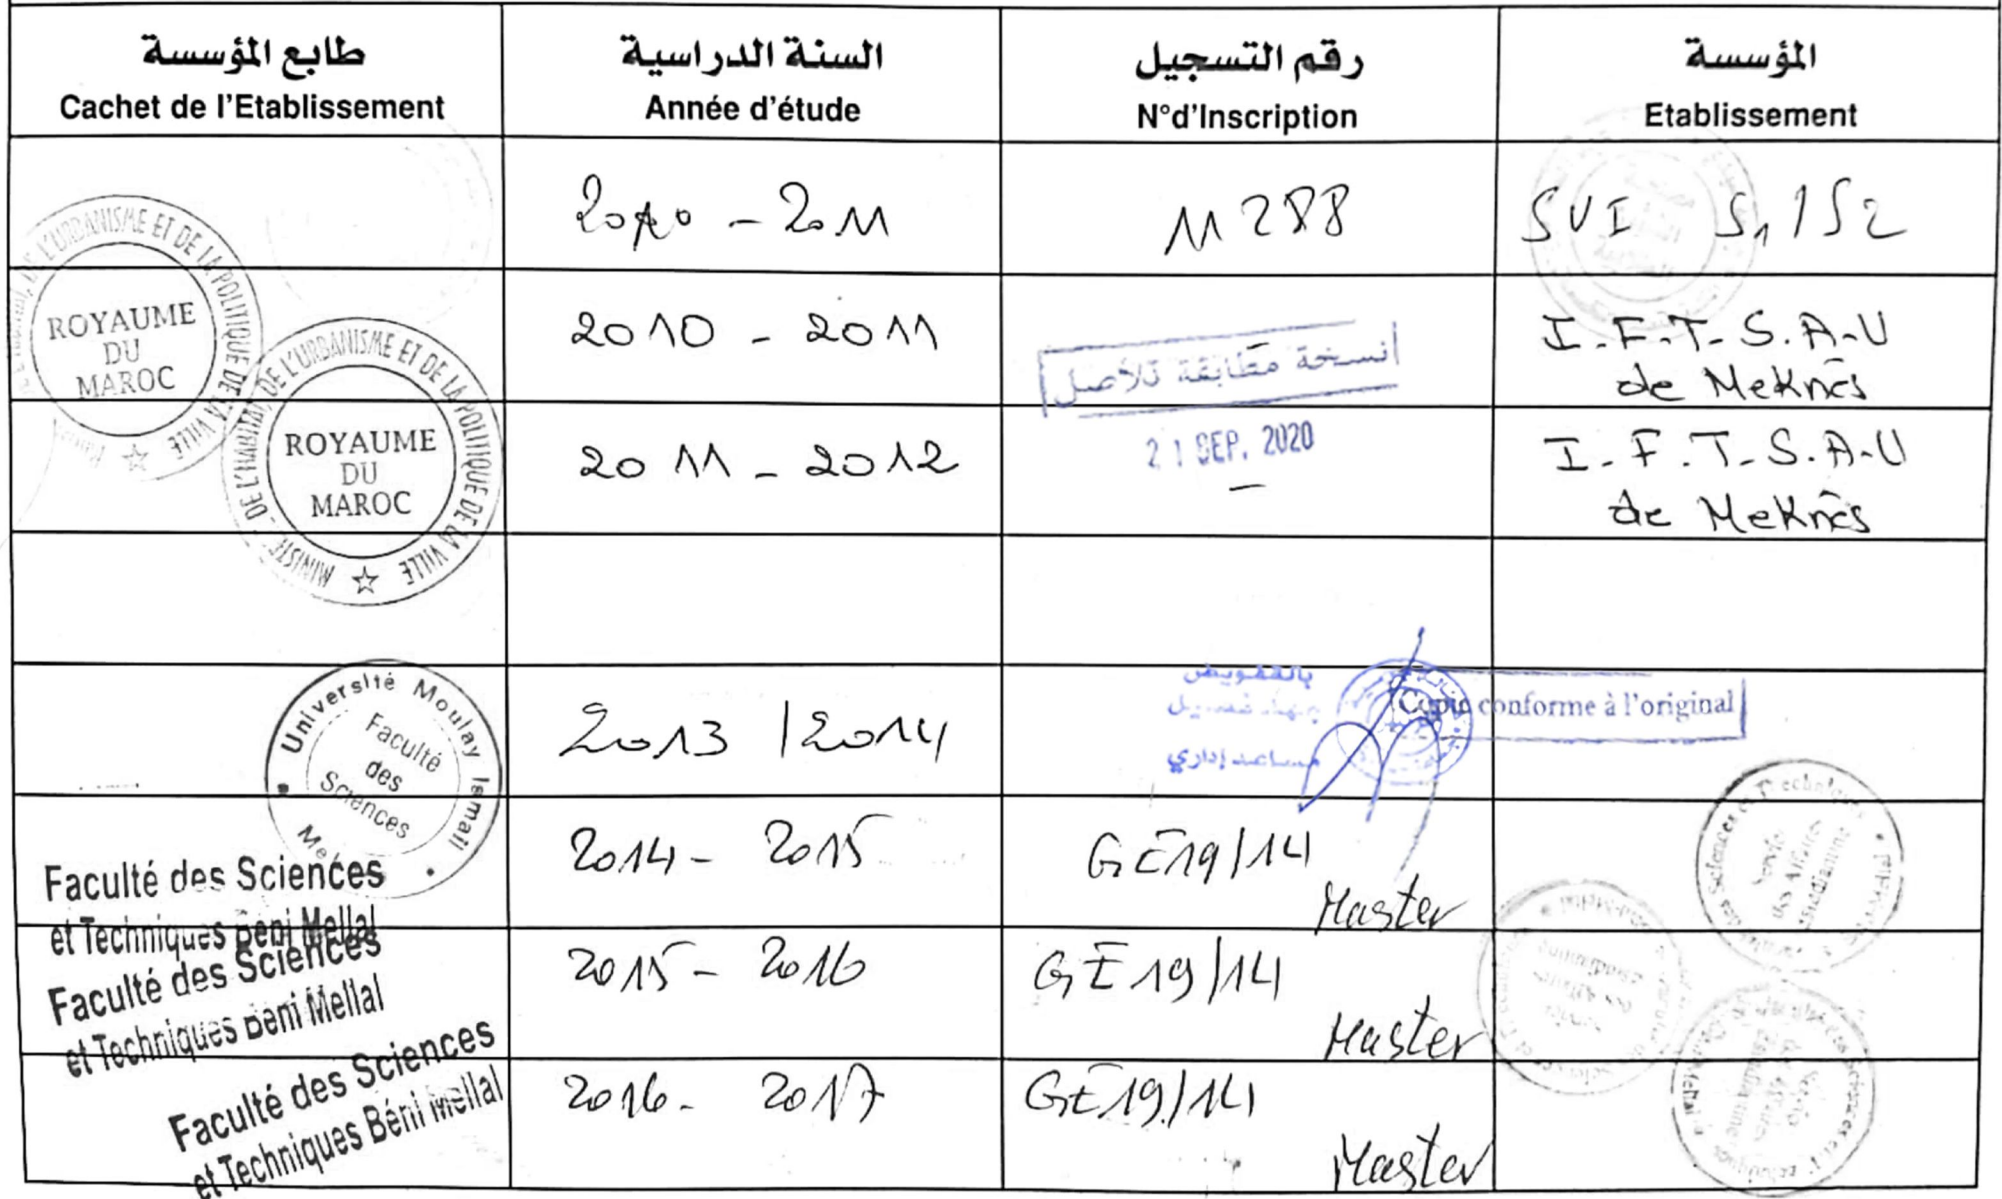 طابع المؤسسة
Cachet de l'Etablissement
السنة الدراسية
Année d'étude
رقم التسجيل
N°d'Inscription
المؤسسة
Etablissement
2010 - 2011
11288
SVI S1/S2
2010 - 2011
I.F.T.S.A.U
de Meknès
نسخة مطابقة للأصل
2011 - 2012
21 SEP. 2020
I.F.T.S.A.U
de Meknès
DE L'URBANISME ET DE LA POLITIQUE DE LA VILLE
ROYAUME
DU
MAROC
MINISTÈ DE L'HABITAT, DE L'URBANISME ET DE LA POLITIQUE DE LA VILLE
ROYAUME
DU
MAROC
Université Moulay Ismail
Faculté
des
Sciences
2013 / 2014
بالتفويض
مساعد إداري
Copie conforme à l'original
Faculté des Sciences
et Techniques Béni Mellal
2014 - 2015
GE19/14
Master
Faculté des Sciences
et Techniques Béni Mellal
2015 - 2016
GE19/14
Master
Faculté des Sciences
et Techniques Béni Mellal
2016 - 2017
GE19/14
Master